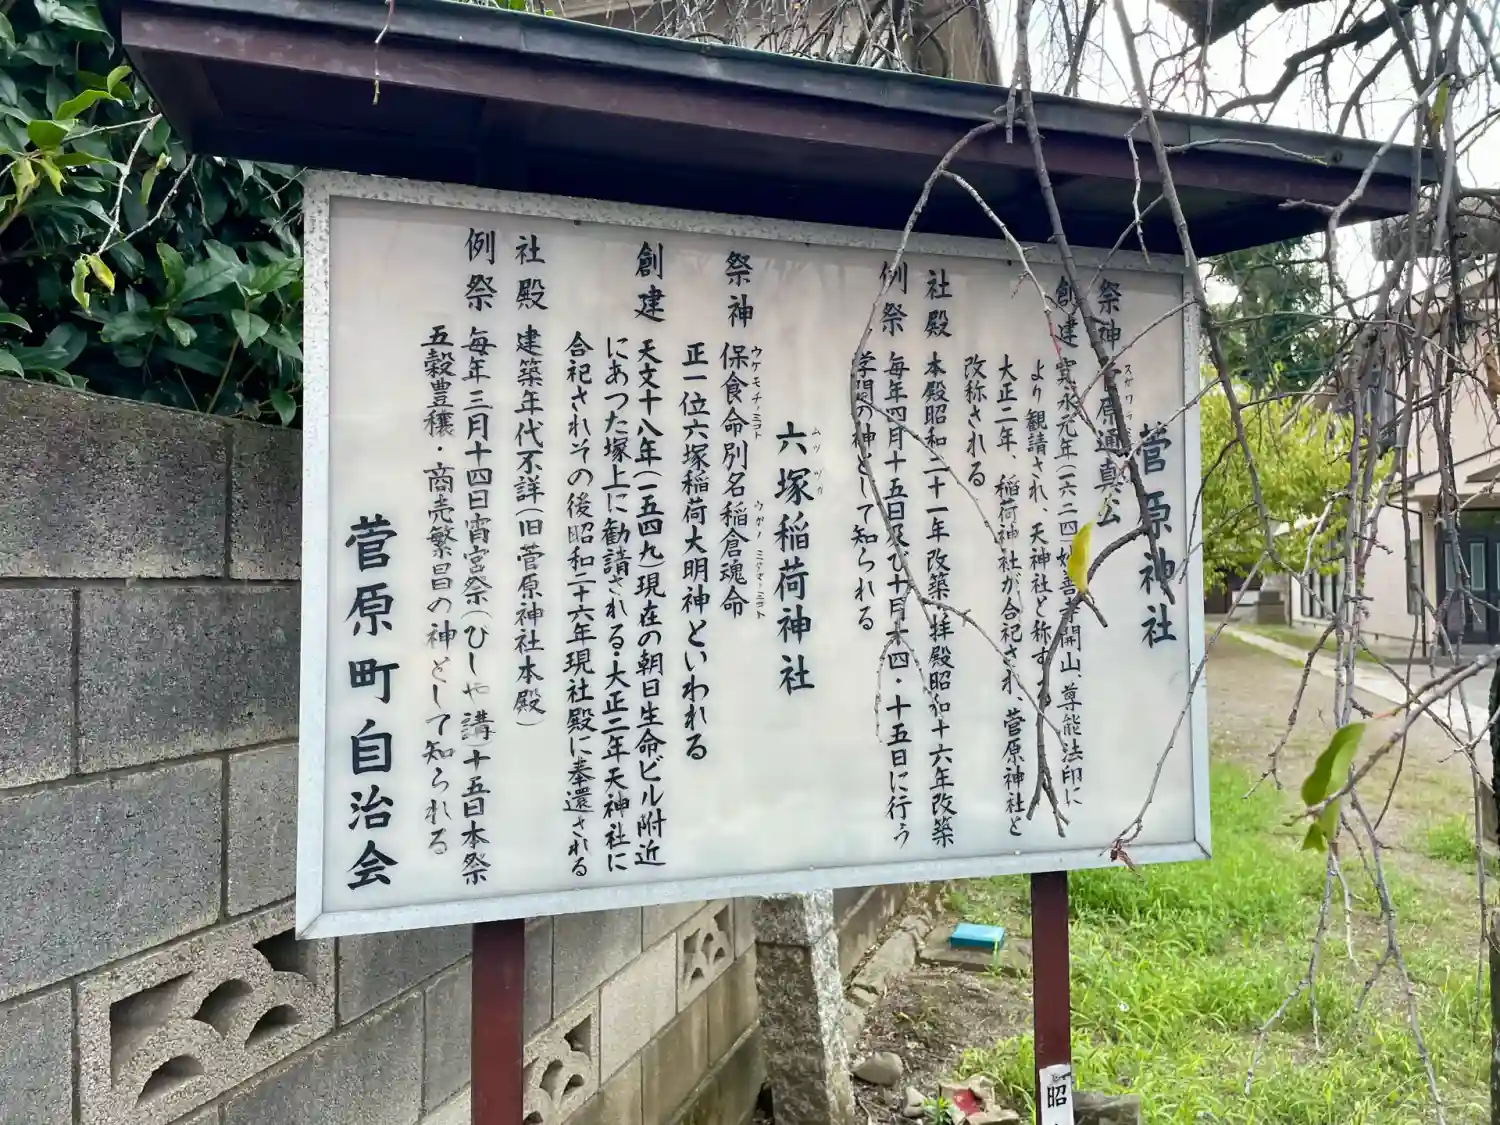 菅原神社
スガワラ
祭神 菅原道真公
創建 寛永元年(一六二四)妙善寺開山、尊能法印に
より観請され、天神社と称す
大正二年、稲荷神社が合祀され、菅原神社と
改称される
社殿 本殿昭和二十一年改築 拝殿昭和十六年改築
例祭 毎年四月十五日及び十月十四・十五日に行う
学問の神として知られる
ムツヅカ
六塚稲荷神社
ウケモチノミコト ウガノミタマノミコト
祭神 保食命別名稲倉魂命
正一位六塚稲荷大明神といわれる
創建 天文十八年(一五四九)現在の朝日生命ビル附近
にあつた塚上に勧請される・大正二年天神社に
合祀されその後昭和二十六年現社殿に奉還される
社殿 建築年代不詳(旧菅原神社本殿)
例祭 毎年三月十四日宵宮祭(ひしや講)十五日本祭
五穀豊穣・商売繁昌の神として知られる
菅原町自治会
昭